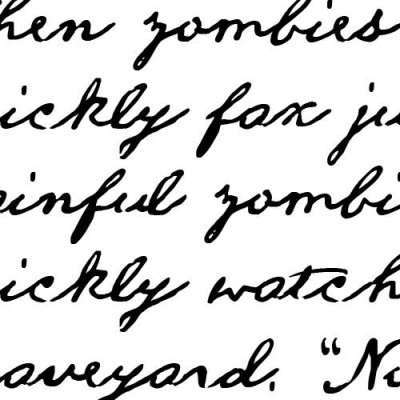 hen zombies
ickly fax ju
inful zombi
ickly watch
aveyard. “No